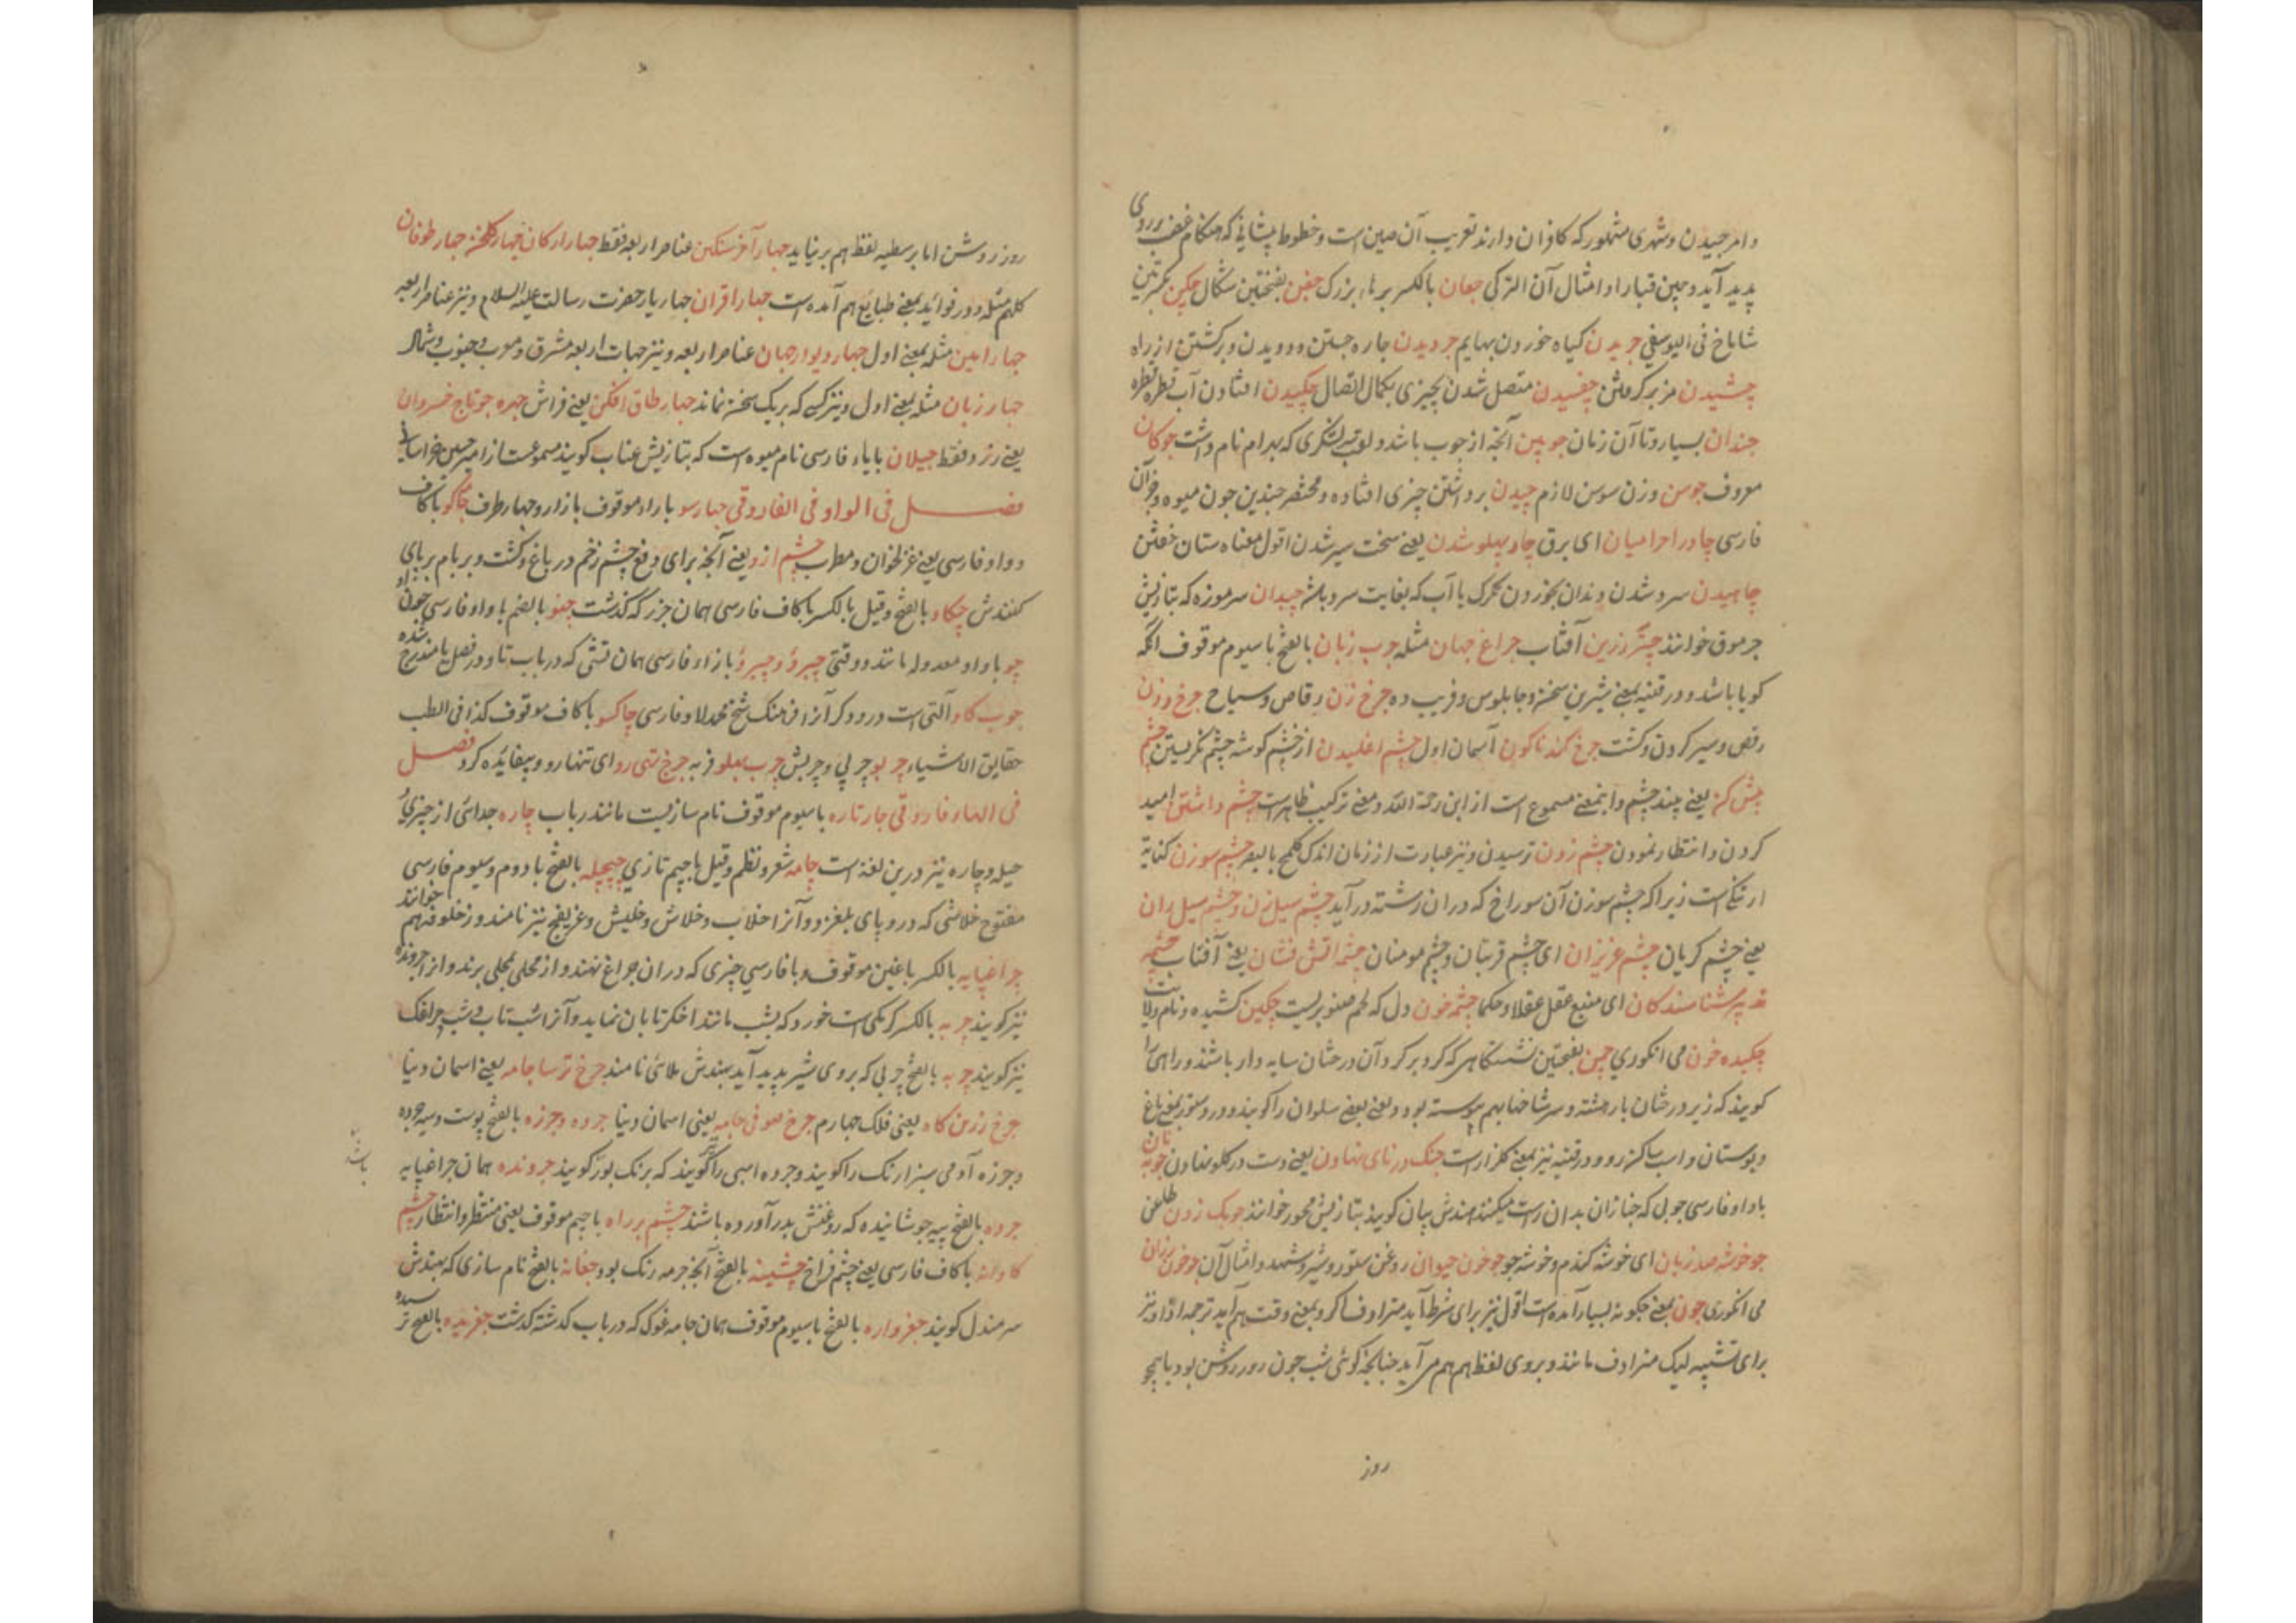 و امر چیدن و شهری مشهور که کافران دارند تعریب آن صین است و خطوط پیشانی که هنکام غضب بر روی
پدید آید و چین قبا را و امثال آن الترکی جغان بالکسر بر ناء بزرک جغن بفتحتین سکال چکین بکسرتین
شاباخ فی الیوسفی چریدن کیاه خوردن بهایم چردیدن چاره جستن و دویدن و برکشتن از راه
چشیدن مزه کرفتن چفسیدن متصل شدن بچیزی بکمال اتصال چکیدن افتادن آب قطره قطره
چندان بسیار و تا آن زمان چوبین آنچه از چوب باشد و لقب لشکری که بهرام نام داشت چوکان
معروف چوسن وزن سوسن لازم چیدن برداشتن چیزی افتاده و مختصر چندین چون میوه و جز آن
فارسی چادر احرامیان ای برق چار پهلو شدن یعنی سخت سیر شدن اقول معناه ستان خفتن
چاهیدن سرد شدن دندان بخوردن تکرک یا آب که بغایت سرد باشد چیدان سرموزه که بتازیش
جرموق خوانند چتر زرین آفتاب چراغ جهان مثله چرب زبان بالفتح با سیوم موقوف انکه
کویا باشد و در قنیه بمعنی شیرین سخن و چابلوس و فریب ده چرخ زن رقاص و سیاح چرخ زدن
رقص و سیر کردن و کشت چرخ کندناکون آسمان اول چشم اغلیدن از خشم کوشه چشم نکریستن چشم
پیش کن یعنی چند چشم و اینمعنی مسموع است از ابن رحمة الله و معنی ترکیب ظاهرست چشم داشتن امید
کردن و انتظار نمودن چشم زدن ترسیدن و نیز عبارت از زمان اندک کلمح بالبصر چشم سوزن کنایة
از تنکی است زیرا که چشم سوزن آن سوراخ که در ان رشته در آید چشم سیل زن و چشم سیل ران
یعنی چشم کریان چشم عزیزان ای چشم قربان و چشم مومنان چشمه آتش فشان یعنی آفتاب چشمه
تدبیر شناسندکان ای منبع عقل عقلا و حکما چشمه خون دل که لحم صنوبریست چکین کشیده و نام ولایت
چکیده خون می انکوری چمن بفتحتین نشستکاهی که کرد بر کرد آن درختان سایه دار باشند و راهی را
کویند که زیر درختان بار هشته و سر شاخها بهم پیوسته بود و یعنی بعضی سلوان را کویند و در دستور بمعنی باغ
و بوستان و اسب ساکن رو و در قنیه نیز بمعنی کلزارست چنک در نای نهادن یعنی دست در کلو نهادن چوبه نان
با واو فارسی چوبی که خبازان بدان راست میکنند هندش بیلن کویند بتازیش محور خوانند چوبک زدن طلعی
جو خوشه صد زبان ای خوشه کندم و خوشه جو چو خون حیوان روغن ستور و شیر و شهد و امثال آن چو خون رزان
می انکوری چون بمعنی چکونه بسیار آمده است اقول نیز برای شرط آید مترادف اکر و بمعنی وقت هم آید ترجمه اذا و نیز
برای تشبیه لیک مترادف مانند و بروی لفظ هم هم می آید چنانچه کوئی شب چون روز روشن بود یا همچو
روز
روز روشن اما بر سطیه لفظ هم برنیاید چهار آخر سنکین عناصر اربعه فقط چهار ارکان چهار کلخن چهار طوفان
کلهم مثله و در فواید بمعنی طبایع هم آمده است چهار اقران چهار یار حضرت رسالت علیه السلام و نیز عناصر اربعه
چهار امین مثله بمعنی اول چهار دیوار جهان عناصر اربعه و نیز جهات اربعه مشرق و مغرب و جنوب و شمال
چهار زبان مثله بمعنی اول و نیز کسی که بر یک سخن نماند چهار طاق افکن یعنی فراش چهره جو تاج خسروان
یعنی زرد فقط چیلان با یاء فارسی نام میوه است که بتازیش عناب کویند مسموعست از امیر حسین خراسانی
فصل فی الواو فی الفاروقی چهارسو با راء موقوف بازار و چهار طرف چاکو با کاف
و واو فارسی یعنی غزلخوان و مطرب چشم ارو یعنی آنچه برای دفع چشم زخم در باغ و کشت و بر بام بر پای
کنندش چکاو بالفتح و قیل بالکسر با کاف فارسی همان جزر که کذشت چنو بالضم با واو فارسی چون او
چو با واو معدوله مانند و وقتی چیرو و چیرو با زاء فارسی همان تشی که در باب تا و در فصل یا مندرج شده
چوب کاو آلتی است درودکر آنرا از فرهنک شیخ محمد لاد فارسی چاکسو با کاف موقوف کذا فی الطب
حقایق الاشیاء چربو چربی و چربش چرب پهلو فربه چرخ تهی رو ای تنها رو و بیفایده کرد فصل
فی الهاء فاروقی چارتاره با سیوم موقوف نام سازیست مانند رباب چاره جدائی از چیزی و
حیله و چاره نیز درین لغة است چامه شعر و نظم و قیل با جیم تازی چیچله بالفتح با دوم و سیوم فارسی
مفتوح خلاشی که درو پای بلغزد و آنرا خلاب و خلاش و خلیش و غریفج نیز نامند و زخلوفه هم خوانند
چراغپایه بالکسر با غین موقوف و با فارسی چیزی که در ان چراغ نهند و از محلی بمحلی برند و انرا چرونده
نیز کویند چربه بالکسر کرمکی است خورد که بشب مانند اخکر تابان نماید و آنرا شب تاب و شب چراغک
نیز کویند چربه بالفتح چربی که بروی شیر پدید آید هندش ملائی نامند چرخ ترسا جامه یعنی اسمان دنیا
چرخ زرین کاه یعنی فلک چهارم چرخ صوفی جامه یعنی اسمان دنیا چرده و چرزه بالفتح پوست و سیه چرده
و چرزه آدمی سبز ارنک را کویند و چرده اسپی را کویند که برنک بور کویند چرونده همان چراغپایه
باشد
چرده بالفتح پیه جوشانیده که روغنش بدر آورده باشند چشم بر راه با جیم موقوف یعنی منتظر و انتظار چشم
کاوانه با کاف فارسی یعنی چشم فراخ چشینه بالفتح آنچه جرمه رنک بود چغانه بالفتح نام سازی که بهندش
سرمندل کویند چغزواره بالفتح با سیوم موقوف همان جامه غوک که در باب کذشته کذشت چغزیده بالفتح ترسیده